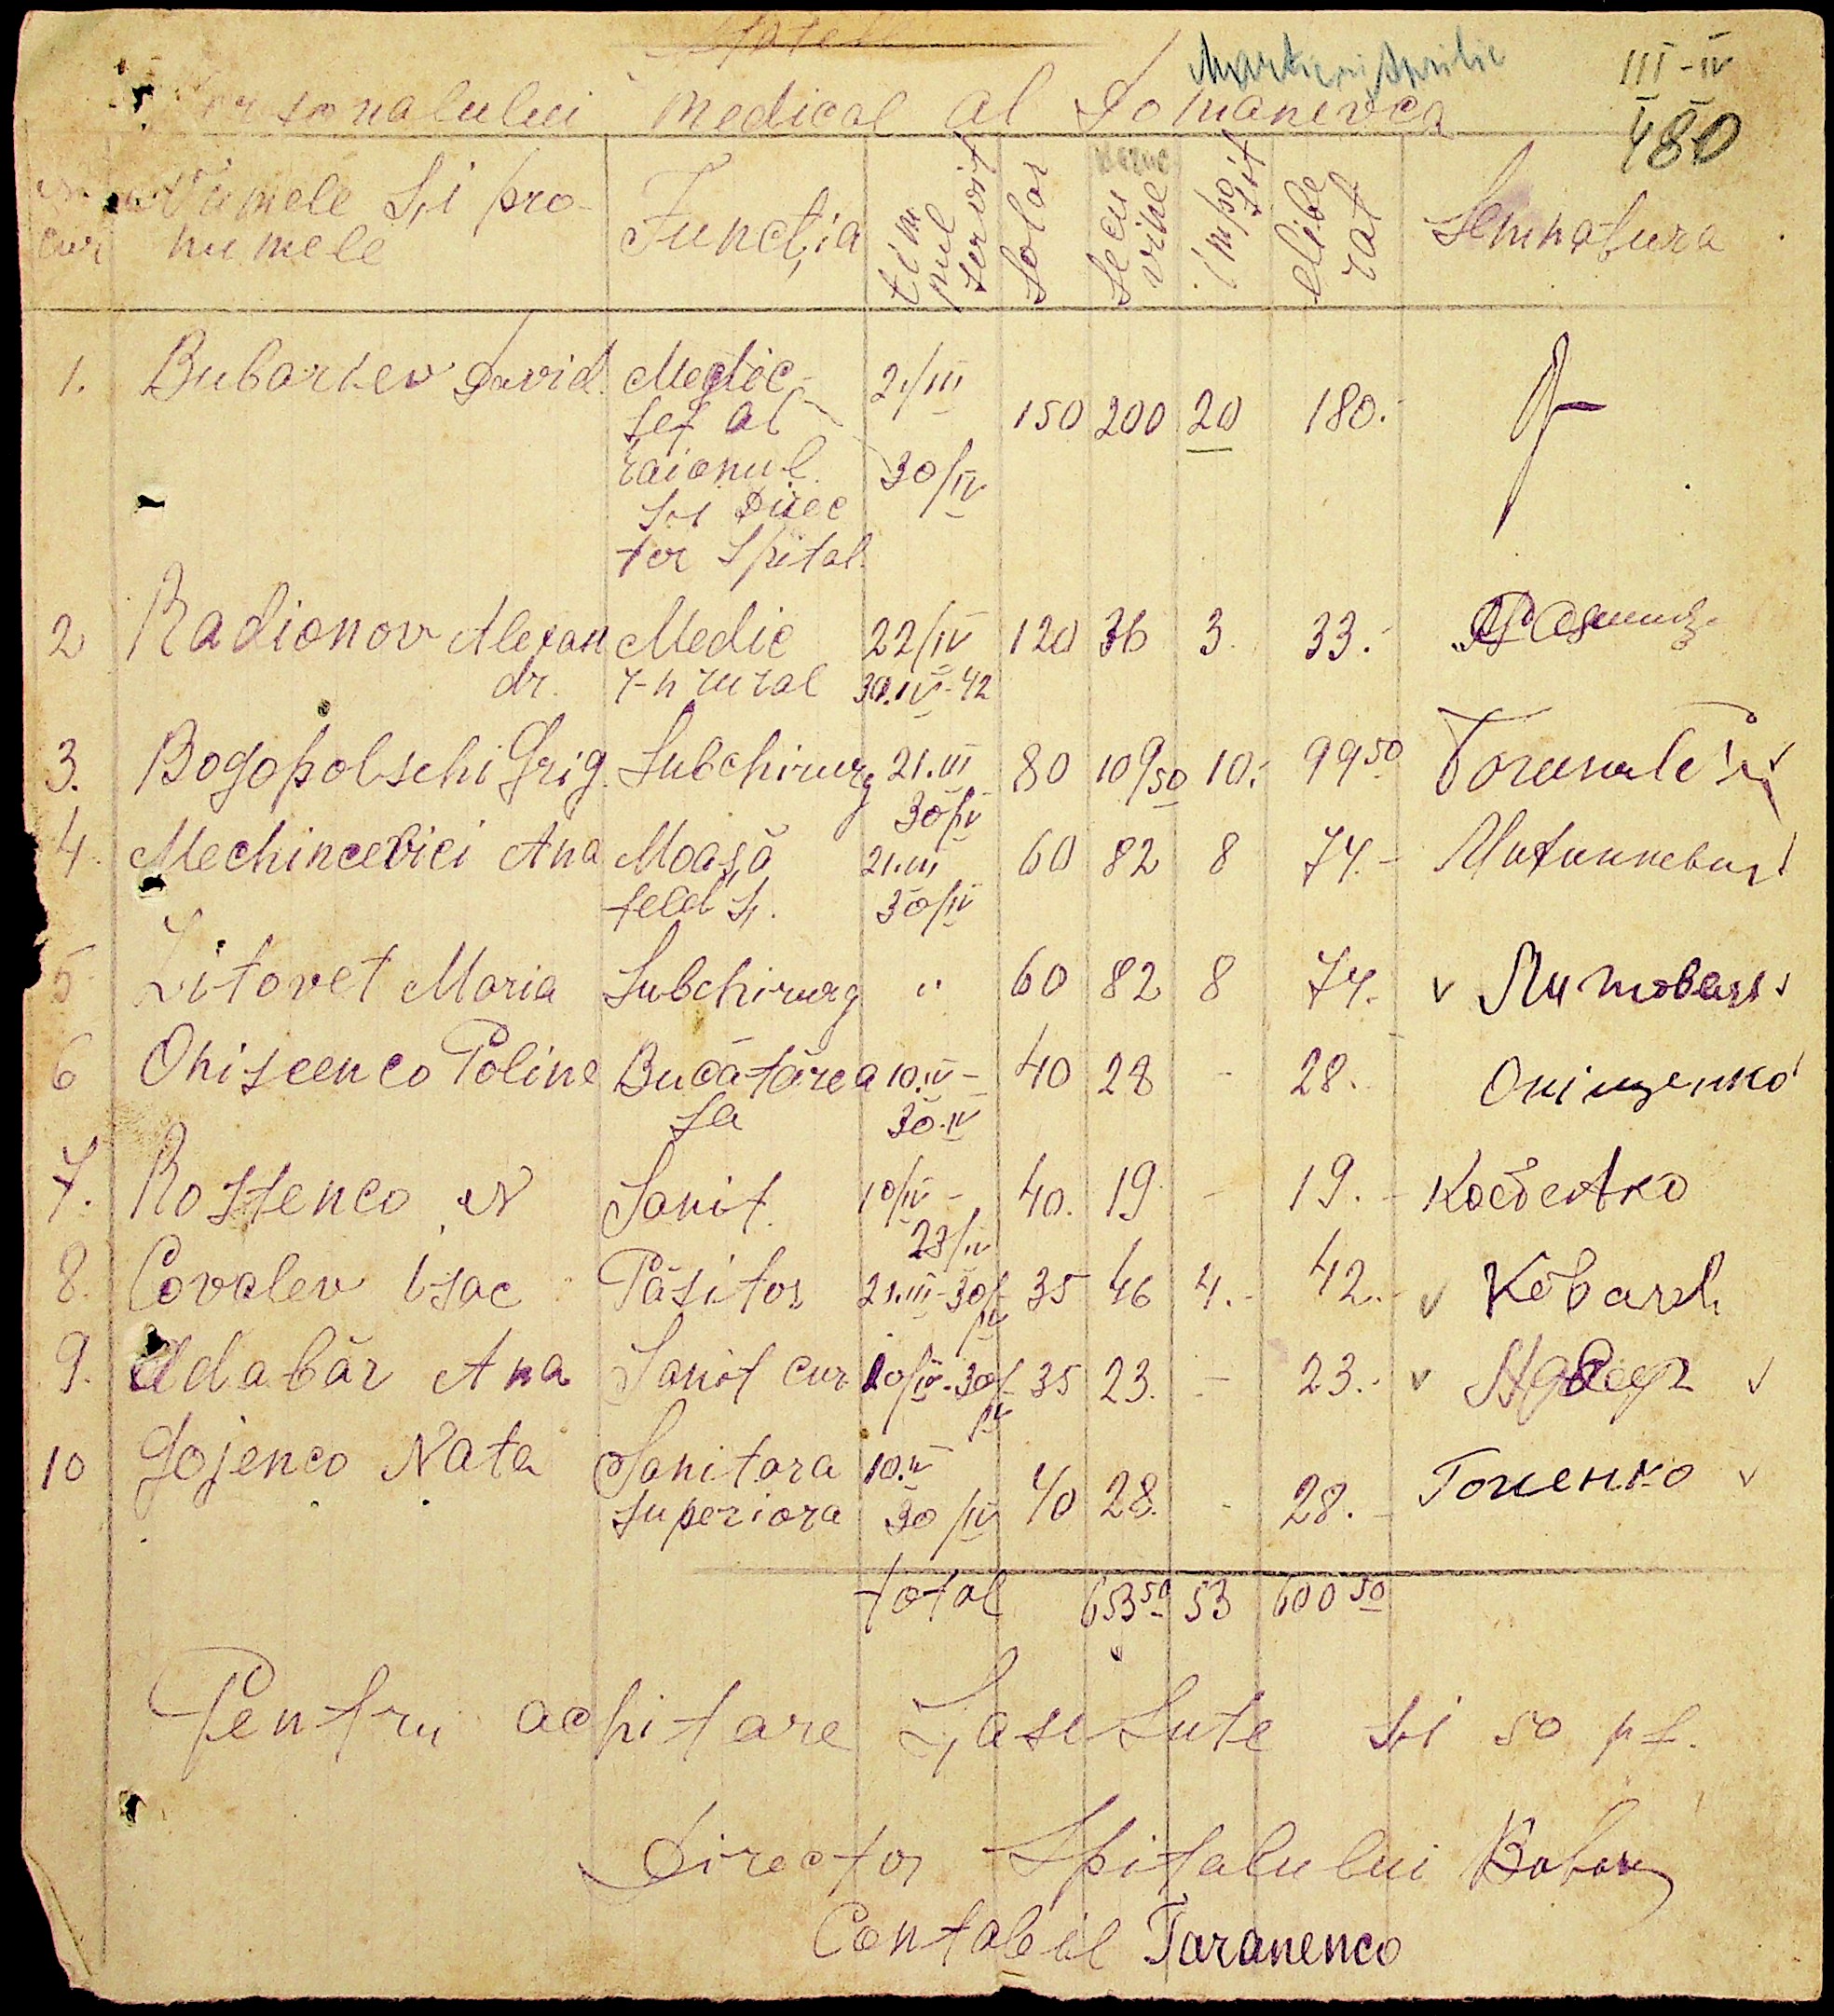 Martie și Aprilie III-IV
480
Personalului Medical al Domanevca
Numele și pro- Funcția timpul servit Solar Se cu vine impozit elibe rat Semnatura
cur numele
1. Bubariev David Medic 21/III 150 200 20 180.-
șef al
raionul 30/IV
și Direc
tor Spital.
2 Radionov Alexan Medic 22/IV 120 36 3. 33.-
dr. r-n rural 30.IV-42
3. Bogopolschi Grig. Subchirurg 21.III 80 109/50 10.- 99 50
30/IV
4. Mechincevici Ana Moașă 21.III 60 82 8 74.-
feldș. 30/IV
5 Litovet Maria Subchirurg " 60 82 8 74.- v v
6 Onisceenco Poline Bucătărea 10.IV- 40 28 - 28.- Онiщенко
sa 30.IV
7. Rostenco N Sanit. 10/IV- 40. 19 - 19.-
23/IV
8. Covalev Isac Păzitor 21.III-30/ 35 46 4.- 42.- v
IV
9. Adabăr Ana Sanit cur 10/IV-30/ 35 23. - 23.- v v
IV
10 Gojenco Nata Sanitara 10.IV 40 28. - 28.- Гоженко v
superiora 30/IV
total 653 50 53 600 50
Pentru achitare Șase sute și 50 pf.
Director Spitalului
Contabil Taranenco